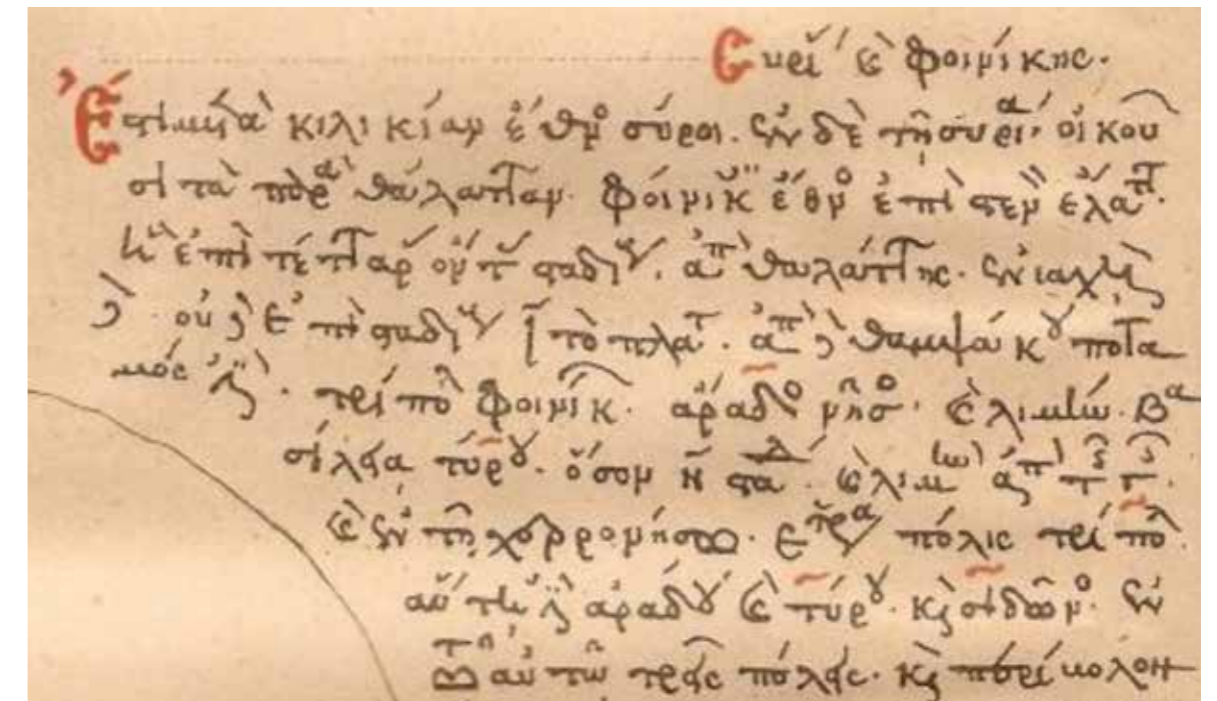 Συρί καὶ φοινίκης.
Ἔστι μετὰ κιλικίαν ἔθνο σύροι. ἐν δὲ τῆ συρία οἰκοῦ
σι τὰ παρὰ θάλατταν. φοίνικ ἔθνο ἐπὶ στενὸν ἔλατ.
ἢ ἐπὶ τέτταρ ὄντ σταδίους. ἀπὸ θαλάττης. ἐνιαχῆ
δὲ οὐδὲ ἐπὶ σταδίους ι τὸ πλατ. ἀπὸ δὲ θαψάκου ποτα
μός ἐστι. τρίπολ φοινίκ. ἄραδο νῆσο. καὶ λιμὴν. βα
σίλεια τύρου. ὅσον η στα. καὶ λιμ ἀπὸ τ γ.
καὶ ἐν τῆ χερρονήσω. ἑτέρα πόλις τρίπολ.
αὕτη ἐστὶ ἀράδου καὶ τύρου. καὶ σιδῶνο. ἐν
τη αὐτῶ τρεῖς πόλεις. καὶ περί